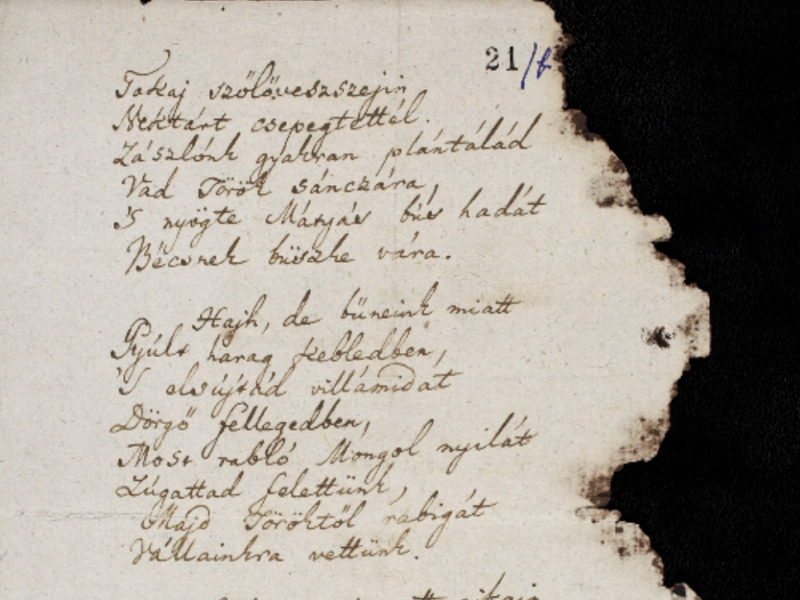 21/f
Tokaj szőlőveszszejin
Nektárt csepegtettél.
Zászlónk gyakran plántálád
Vad Török sánczára,
'S nyögte Mátyás bús hadát
Bécsnek büszke vára.
Hajh, de bűneink miatt
Gyúlt harag kebledben,
'S elsújtád villámidat
Dörgő fellegedben,
Most rabló Mongol nyilát
Zúgattad felettünk,
Majd Töröktől rabigát
Vállainkra vettünk.